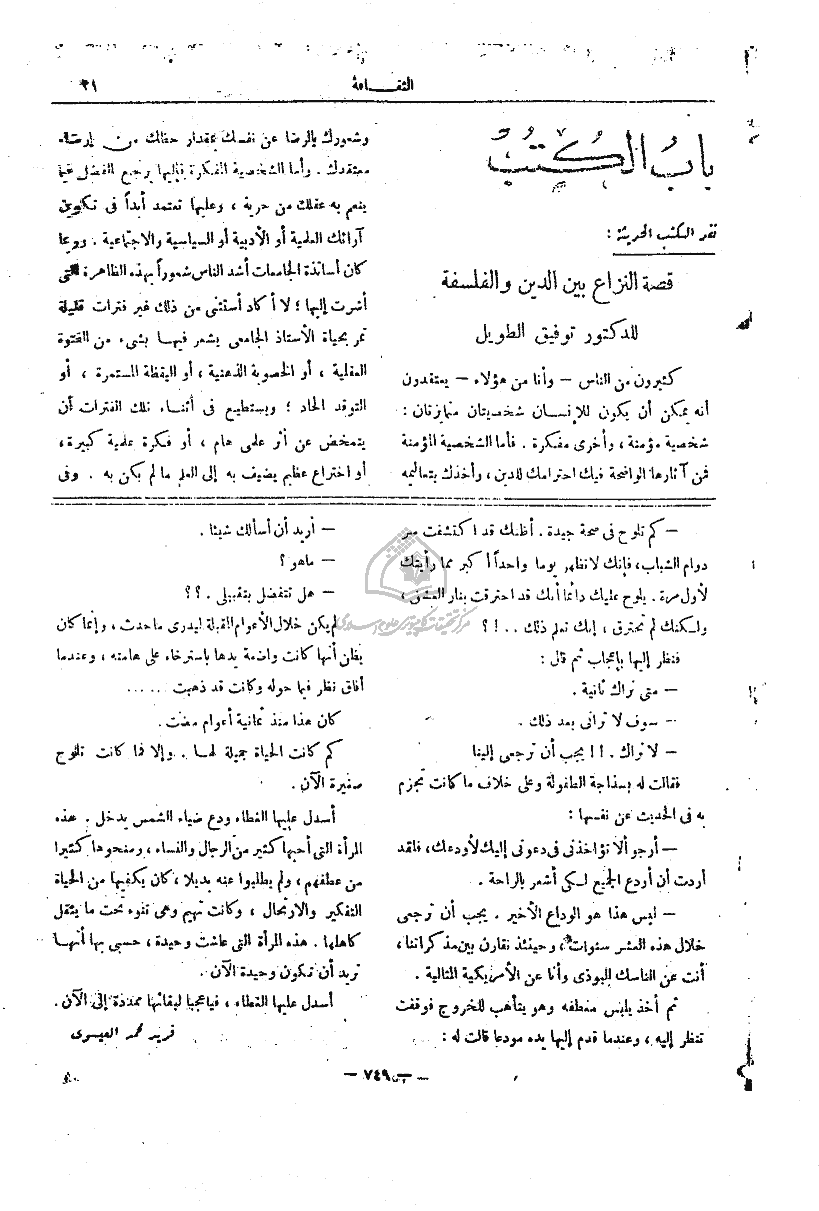 الثقافة
٣١
باب الكتب
نقد الكتب الحديثة :
قصة النزاع بين الدين والفلسفة
للدكتور توفيق الطويل
كثيرون من الناس — وأنا من هؤلاء — يعتقدون
أنه يمكن أن يكون للإنسان شخصيتان متمايزتان :
شخصية مؤمنة ، وأخرى مفكرة . فأما الشخصية المؤمنة
فمن آثارها الواضحة فيك احترامك للدين ، وأخذك بتعاليمه
وشعورك بالرضا عن نفسك بمقدار حظك من إرضاء
معتقدك . وأما الشخصية المفكرة فإليها يرجع الفضل فيما
ينعم به عقلك من حرية ، وعليها تعتمد أبداً فى تكوين
آرائك العلمية أو الأدبية أو السياسية والاجتماعية . وربما
كان أساتذة الجامعات أشد الناس شعوراً بهذه الظاهرة التى
أشرت إليها ؛ لا أكاد أستثنى من ذلك غير فترات قليلة
تمر بحياة الأستاذ الجامعى يشعر فيها بشىء من الفتوة
العقلية ، أو الخصوبة الذهنية ، أو اليقظة المستمرة ، أو
التوقد الحاد ؛ ويستطيع فى أثناء تلك الفترات أن
يتمخض عن أثر علمى هام ، أو فكرة علمية كبيرة ،
أو اختراع عظيم يضيف به إلى العلم ما لم يكن به . وفى
— كم تلوح فى صحة جيدة . أظنك قد اكتشفت سر
دوام الشباب ، فإنك لا تظهر يوما واحداً أكبر مما رأيتك
لأول مرة . يلوح عليك دائما أنك قد احترقت بنار العشق ،
ولكنك لم تحترق ، إنك تعلم ذلك . . ! ؟
فنظر إليها بإعجاب ثم قال :
— متى نراك ثانية .
— سوف لا ترانى بعد ذلك .
— لا نراك . !! يجب أن ترجعى إلينا
فقالت له بسذاجة الطفولة وعلى خلاف ما كانت تجزم
به فى الحديث عن نفسها :
— أرجو ألا تؤاخذنى فى دعوتى إليك لأودعك ، فلقد
أردت أن أودع الجميع لكى أشعر بالراحة .
— ليس هذا هو الوداع الأخير . يجب أن ترجعى
خلال هذه العشر سنوات ، وحينئذ نقارن بين مذكراتنا ،
أنت عن الناسك البوذى وأنا عن الأمريكية المثالية .
ثم أخذ يلبس معطفه وهو يتأهب للخروج فوقفت
تنظر إليه ، وعندما قدم إليها يده مودعا قالت له :
— أريد أن أسألك شيئا .
— ما هو ؟
— هل تتفضل بتقبيلى . ؟؟
لم يكن خلال الأعوام المقبلة ليدرى ما حدث ، وإنما كان
يظن أنها كانت واضعة يدها باسترخاء على هامته ، وعندما
أفاق نظر فيما حوله وكانت قد ذهبت . . . . .
كان هذا منذ ثمانية أعوام مضت .
كم كانت الحياة جميلة لها . . وإلا فما كانت تلوح
صغيرة الآن .
أسدل عليها الغطاء ودع ضياء الشمس يدخل . هذه
المرأة التى أحبها كثير من الرجال والنساء ، ومنحوها كثيرا
من عطفهم ، ولم يطلبوا عنه بديلا ، كان يكفيها من الحياة
التفكير والارتحال ، وكانت تهيم وهى تنوء تحت ما يثقل
كاهلها . هذه المرأة التى عاشت وحيدة ، حسبى بها أنها
تريد أن تكون وحيدة الآن .
أسدل عليها الغطاء ، فياعجبا لبقائها ممددة إلى الآن .
فريد محمد العيسوى
— ٧٤٩ —